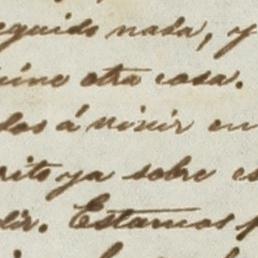 eguido nada, y
uine otra cosa.
dos á vivir en
rito ya sobre es
dir. Estamos p